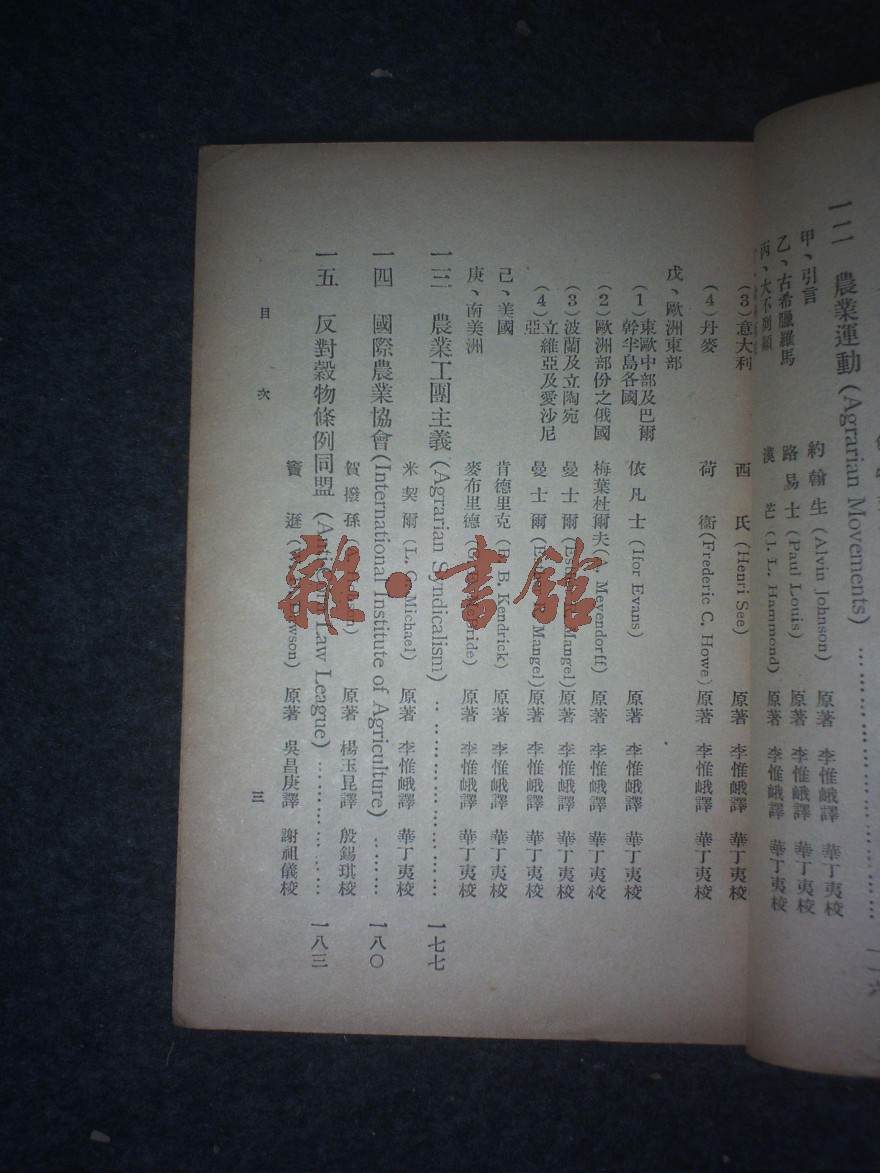 一二 農業運動 (Agrarian Movements)
甲、引言 約翰生 (Alvin Johnson) 原著 李惟峨譯 華丁夷校
乙、古希臘羅馬 路易士 (Paul Louis) 原著 李惟峨譯 華丁夷校
丙、大不列顛 漢芒 (J. L. Hammond) 原著 李惟峨譯 華丁夷校
(3) 意大利 西氏 (Henri See) 原著 李惟峨譯 華丁夷校
(4) 丹麥 荷衞 (Frederic C. Howe) 原著 李惟峨譯 華丁夷校
戊、歐洲東部
(1) 東歐中部及巴爾幹半島各國 依凡士 (Ifor Evans) 原著 李惟峨譯 華丁夷校
(2) 歐洲部份之俄國 梅葉杜爾夫 (Meyendorff) 原著 李惟峨譯 華丁夷校
(3) 波蘭及立陶宛 曼士爾 (Mangel) 原著 李惟峨譯 華丁夷校
(4) 立維亞及愛沙尼亞 曼士爾 (Mangel) 原著 李惟峨譯 華丁夷校
己、美國 肯德里克 (B. B. Kendrick) 原著 李惟峨譯 華丁夷校
庚、南美洲 麥布里德 原著 李惟峨譯 華丁夷校
一三 農業工團主義 (Agrarian Syndicalism) 一七七
米契爾 (L. G. Michael) 原著 李惟峨譯 華丁夷校
一四 國際農業協會 (International Institute of Agriculture) 一八〇
賀撥孫 原著 楊玉昆譯 殷錫琪校
一五 反對穀物條例同盟 (Law League) 一八三
竇遜 原著 吳昌庚譯 謝祖儀校
目次 三
雜·書館